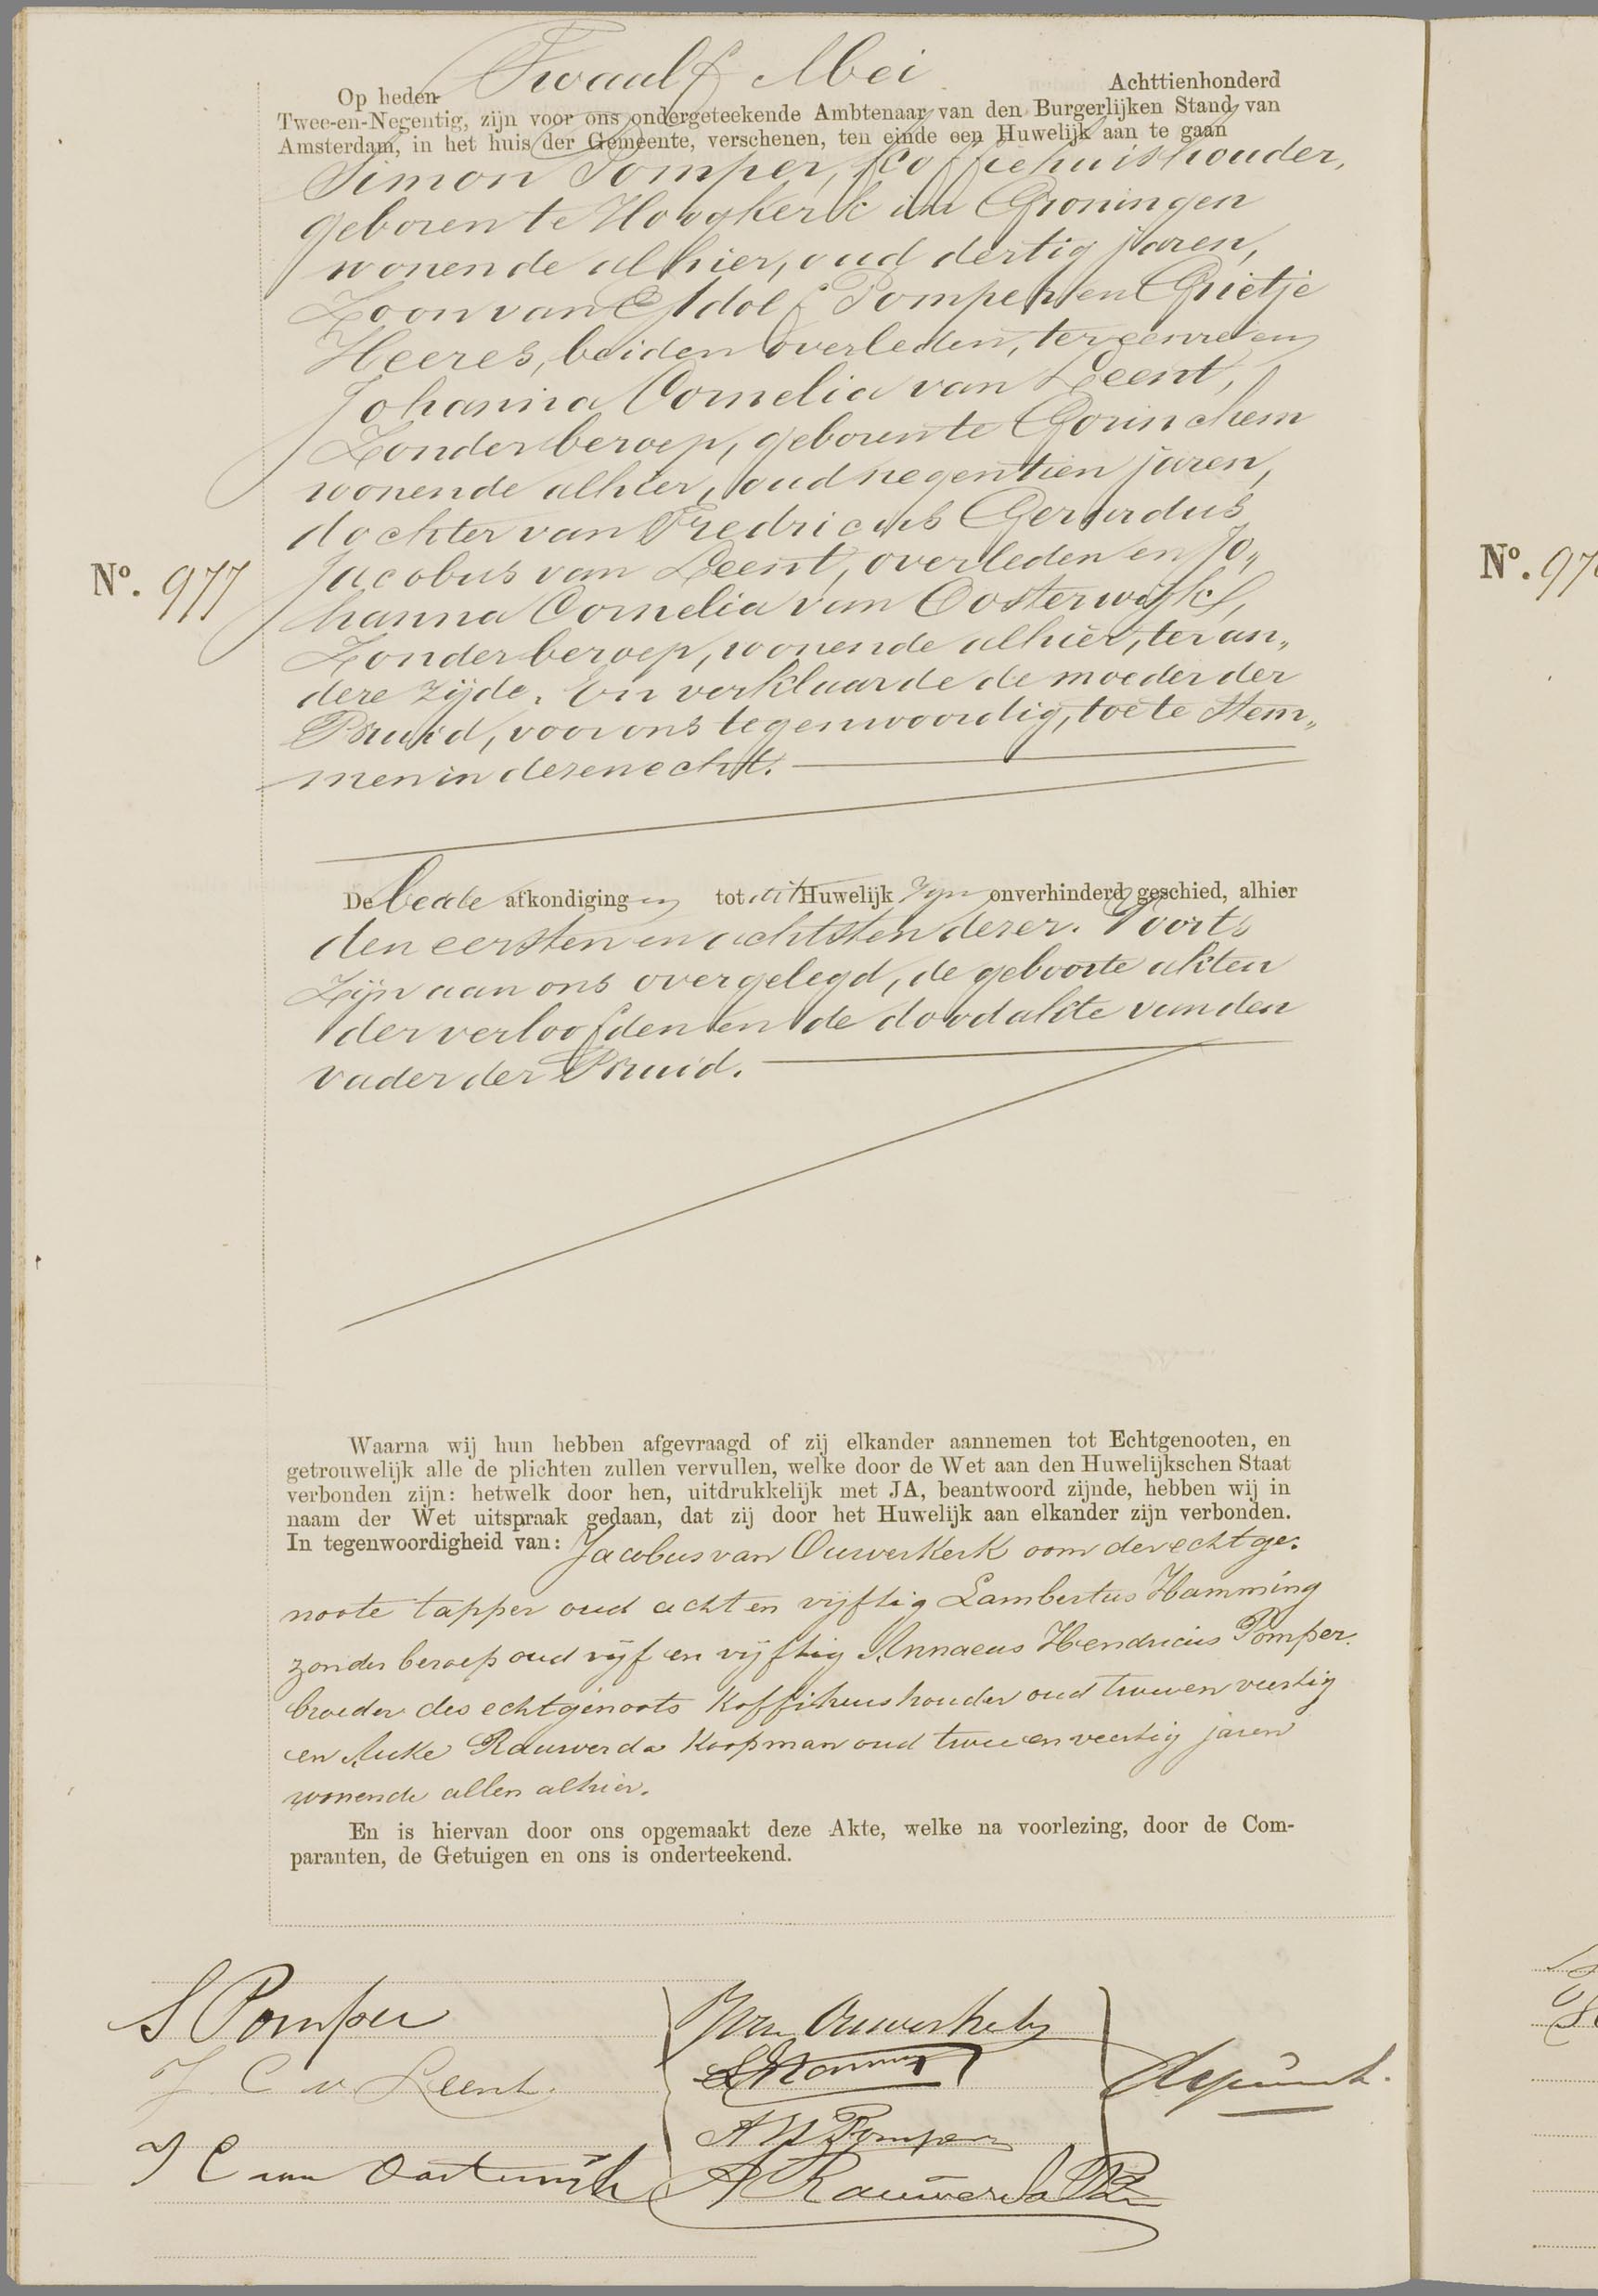 Op heden Twaalf Mei Achttienhonderd
Twee-en-Negentig, zijn voor ons ondergeteekende Ambtenaar van den Burgerlijken Stand van
Amsterdam, in het huis der Gemeente, verschenen, ten einde een Huwelijk aan te gaan
Simon Pomper, Koffiehuishouder,
geboren te Hoogkerk in Groningen
wonende alhier, oud dertig jaren,
Zoon van Eldolf Pomper en Grietje
Heeres, beiden overleden, ter eenre en
Johanna Cornelia van Leent,
Zonder beroep, geboren te Gorinchem
wonende alhier, oud negentien jaren,
dochter van Fredricus Gerardus
Nº. 977 Jacobus van Leent, overleden en Jo„
hanna Cornelia van Oosterwijk,
Zonder beroep, wonende alhier, ter an„
dere zijde. En verklaarde de moeder der
Bruid, voor ons tegenwoordig, toe te stem„
men in dezen echt.
De beide afkondigingen tot dit Huwelijk zijn onverhinderd geschied, alhier
den eersten en achtsten dezer. Voorts
Zijn aan ons overgelegd, de geboorte akten
der verloofden en de doodakte van den
vader der Bruid.
Waarna wij hun hebben afgevraagd of zij elkander aannemen tot Echtgenooten, en
getrouwelijk alle de plichten zullen vervullen, welke door de Wet aan den Huwelijkschen Staat
verbonden zijn: hetwelk door hen, uitdrukkelijk met JA, beantwoord zijnde, hebben wij in
naam der Wet uitspraak gedaan, dat zij door het Huwelijk aan elkander zijn verbonden.
In tegenwoordigheid van: Jacobus van Ouwerkerk oom der echtge:
noote tapper oud acht en vijftig Lambertus Hamming
zonder beroep oud vijf en vijftig Annaeus Hendricus Pomper
broeder des echtgenoots Koffihuishouder oud twee en veertig
en Auke Rauwerda Koopman oud twee en veertig jaren
wonende allen alhier.
En is hiervan door ons opgemaakt deze Akte, welke na voorlezing, door de Com-
paranten, de Getuigen en ons is onderteekend.
S Pomper
J C v Leent.
J C van Oosterwijk
J van Ouwerkerk
L Hamming
A H Pomper
A Rauwerda
Nº. 97